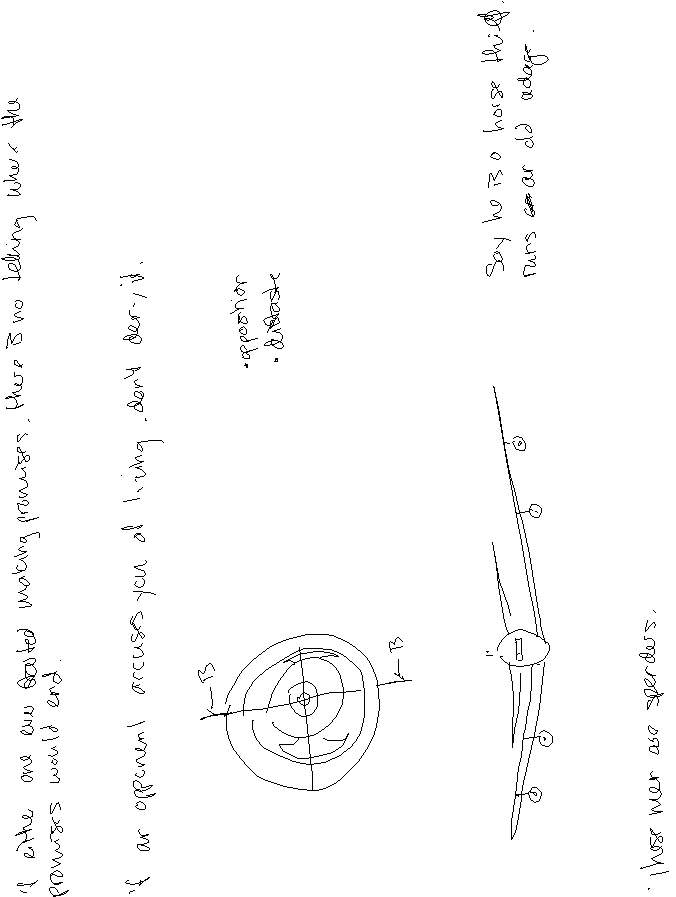 if either one ever started making promises, there is no telling where the
promises would end.
if an opponent accuses you of lying, don't deny it.
• opposition
Say he is a horse thief.
runs an old adage.
B
B
These men are spenders.